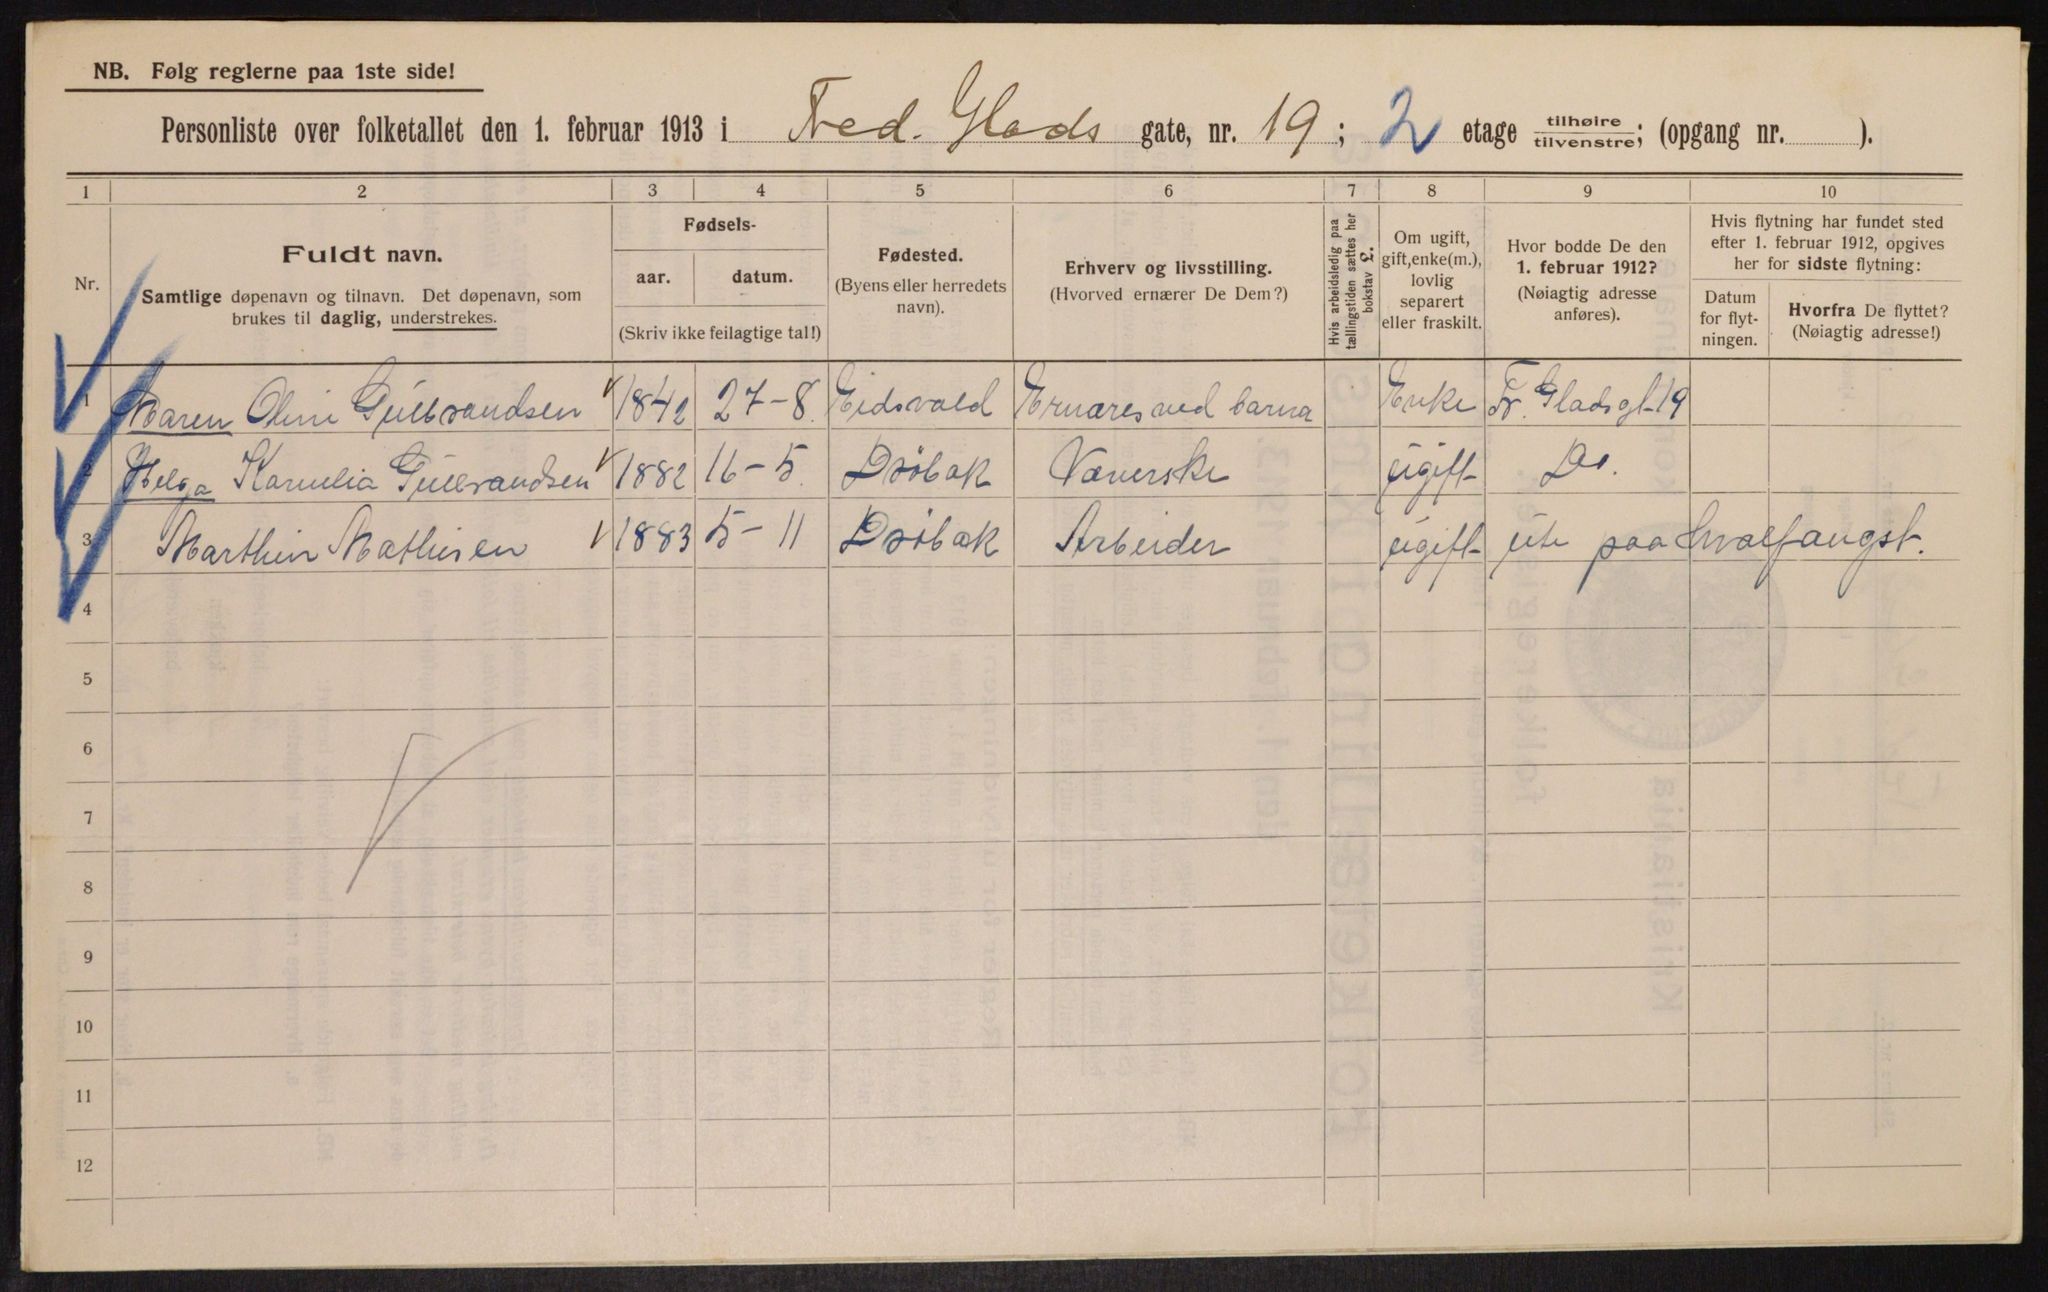 NB. Følg reglerne paa 1ste side!
Personliste over folketallet den 1. februar 1913 i Fred. Glads gate, nr. 19; 2 etage tilhøire tilvenstre; (opgang nr. ).
1 2 3 4 5 6 7 8 9 10
Nr.
Fuldt navn.
Samtlige døpenavn og tilnavn. Det døpenavn, som
brukes til daglig, understrekes.
Fødsels-
aar. datum.
(Skriv ikke feilagtige tal!)
Fødested.
(Byens eller herredets
navn).
Erhverv og livsstilling.
(Hvorved ernærer De Dem?)
Hvis arbeidsledig paa
tællingstiden sættes her
bokstav £.
Om ugift,
gift, enke(m.),
lovlig
separert
eller fraskilt.
Hvor bodde De den
1. februar 1912?
(Nøiagtig adresse
anføres).
Hvis flytning har fundet sted
efter 1. februar 1912, opgives
her for sidste flytning:
Datum
for flyt-
ningen.
Hvorfra De flyttet?
(Nøiagtig adresse!)
1 Maren Olini Gulbrandsen 1842 27-8. Eidsvold Ernæres ved barna Enke Fr. Glads gt. 19
2 Helga Kamilia Gulbrandsen 1882 16-5. Drøbak Væverske ugift Do.
3 Marthin Mathisen 1883 5-11 Drøbak Arbeider ugift ute paa hvalfangst.
4
5
6
7
8
9
10
11
12